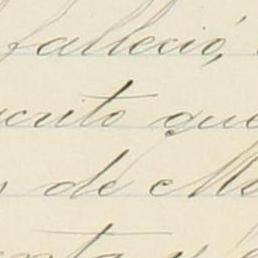 falleció,
crito que
de Ma
enta y